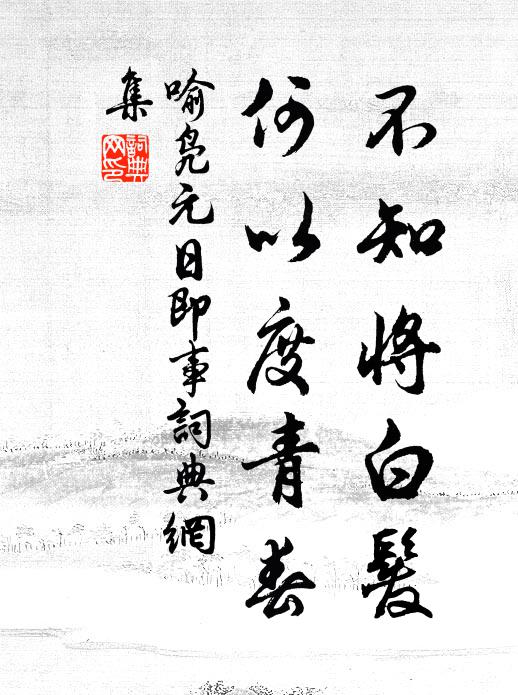 不知将白髮
何以度青春
喻凫元日即事詞典網
集
詞典网印